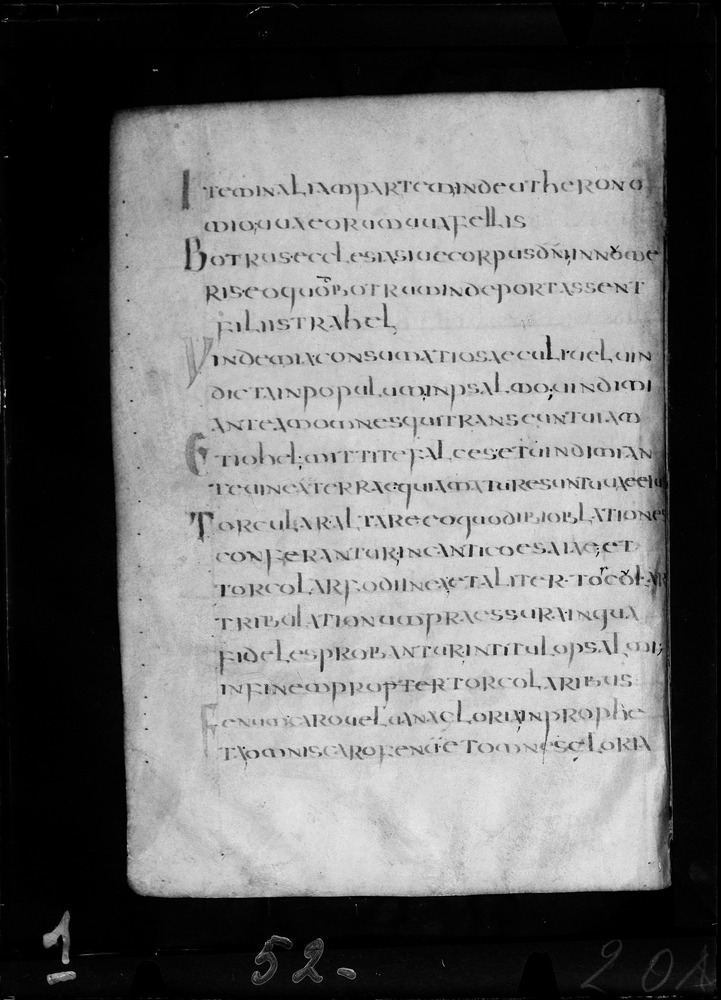 ITEMINALIAMPARTEMINDEUTHERONO
MIO;UUAEORUMUUAFELLIS
BOTRUSECCLESIASIUECORPUSDNIINNUME
RISEOQUODBOTRUMINDEPORTASSENT
FILIISTRAHEL
VINDEMIACONSUMATIOSAECULIUELUIN
DICTAINPOPULUMINPSALMO;UINDIMI
ANTEAMOMNESQUITRANSEUNTUIAM
ETIOHEL;MITTITEFALCESETUINDIMIAN
TEUINEATERRAEQUIAMATURESUNTUUAEEIUS
TORCULARALTAREEOQUODIBIOBLATIONES
CONFERANTUR;INCANTICOESAIAE;ET
TORCOLARFODIINEAETALITER·TORCOLAR
TRIBULATIONUMPRAESSURAINQUA
FIDELESPROBANTUR;INTITULOPSALMI;
INFINEMPROPTERTORCOLARIBUS
FENUMCAROUELUANAGLORIAINPROPHE
TAOMNISCAROFENUETOMNESGLORIA
1
52-
201